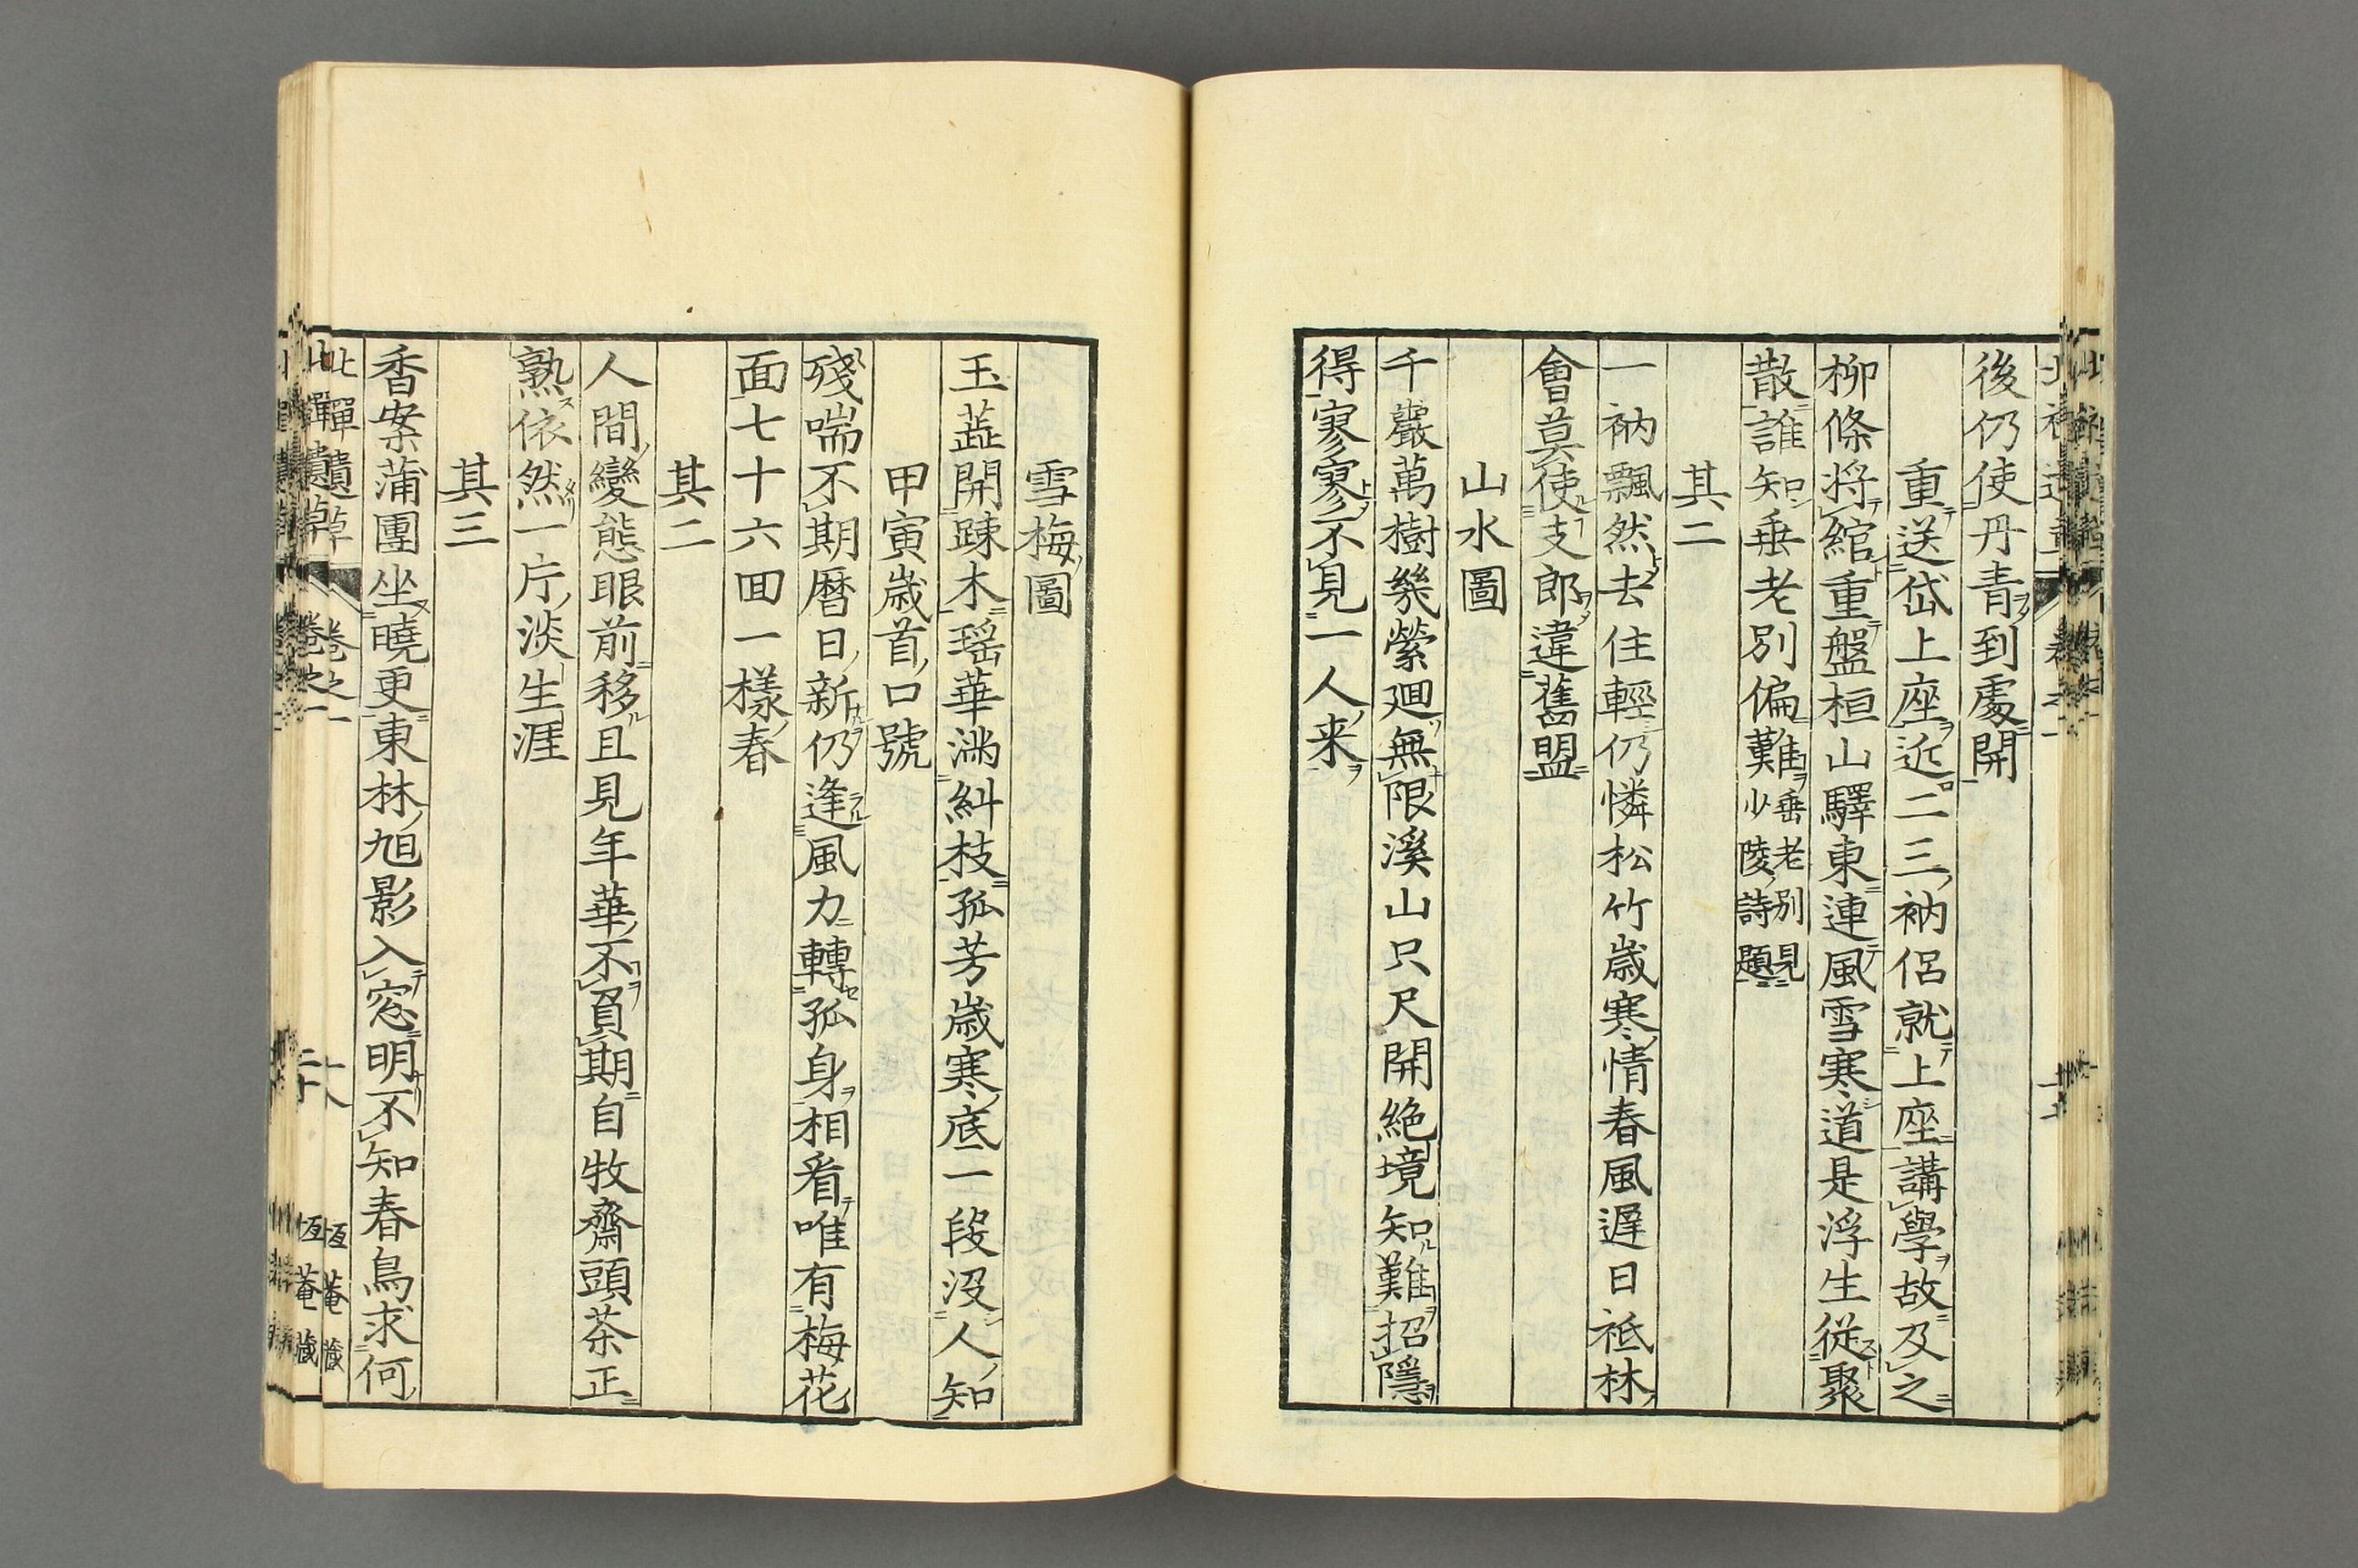 後仍使丹青到處開
重送岱上座近二三衲侶就上座講學故及之
柳條將綰重盤桓山驛東連風雪寒道是浮生從聚
散誰知垂老別偏難垂老別見少陵詩題
其二
一衲飄然去住輕仍憐松竹歲寒情春風遲日祗林
會莫使支郎違舊盟
山水圖
千巖萬樹幾縈廻無限溪山只尺開絕境知難招隱
得寥寥不見一人来
雪梅圖
玉蕋開疎木瑶華滿糾枝孤芳歲寒底一段沒人知
甲寅歲首口號
殘喘不期暦日新仍逢風力轉孤身相看唯有梅花
面七十六回一樣春
其二
人間變態眼前移且見年華不負期自牧齋頭茶正
熟依然一片淡生涯
其三
香案蒲團坐曉更東林旭影入窓明不知春鳥求何
北禪遺草 卷之一 恆菴藏